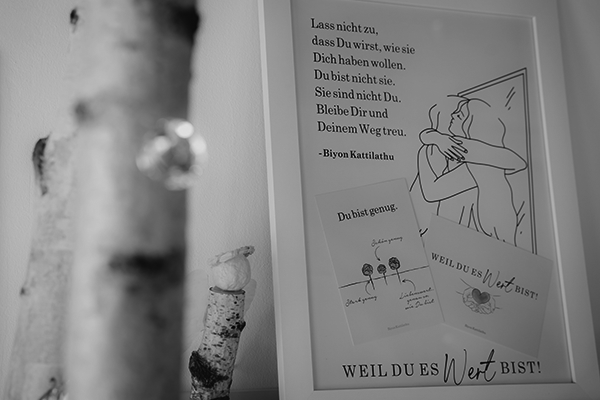 Lass nicht zu,
dass Du wirst, wie sie
Dich haben wollen.
Du bist nicht sie.
Sie sind nicht Du.
Bleibe Dir und
Deinem Weg treu.
-Biyon Kattilathu
Du bist genug.
Schön genug
Stark genug
Liebenswert
genau so
wie Du bist
WEIL DU ES Wert BIST!
WEIL DU ES Wert BIST!